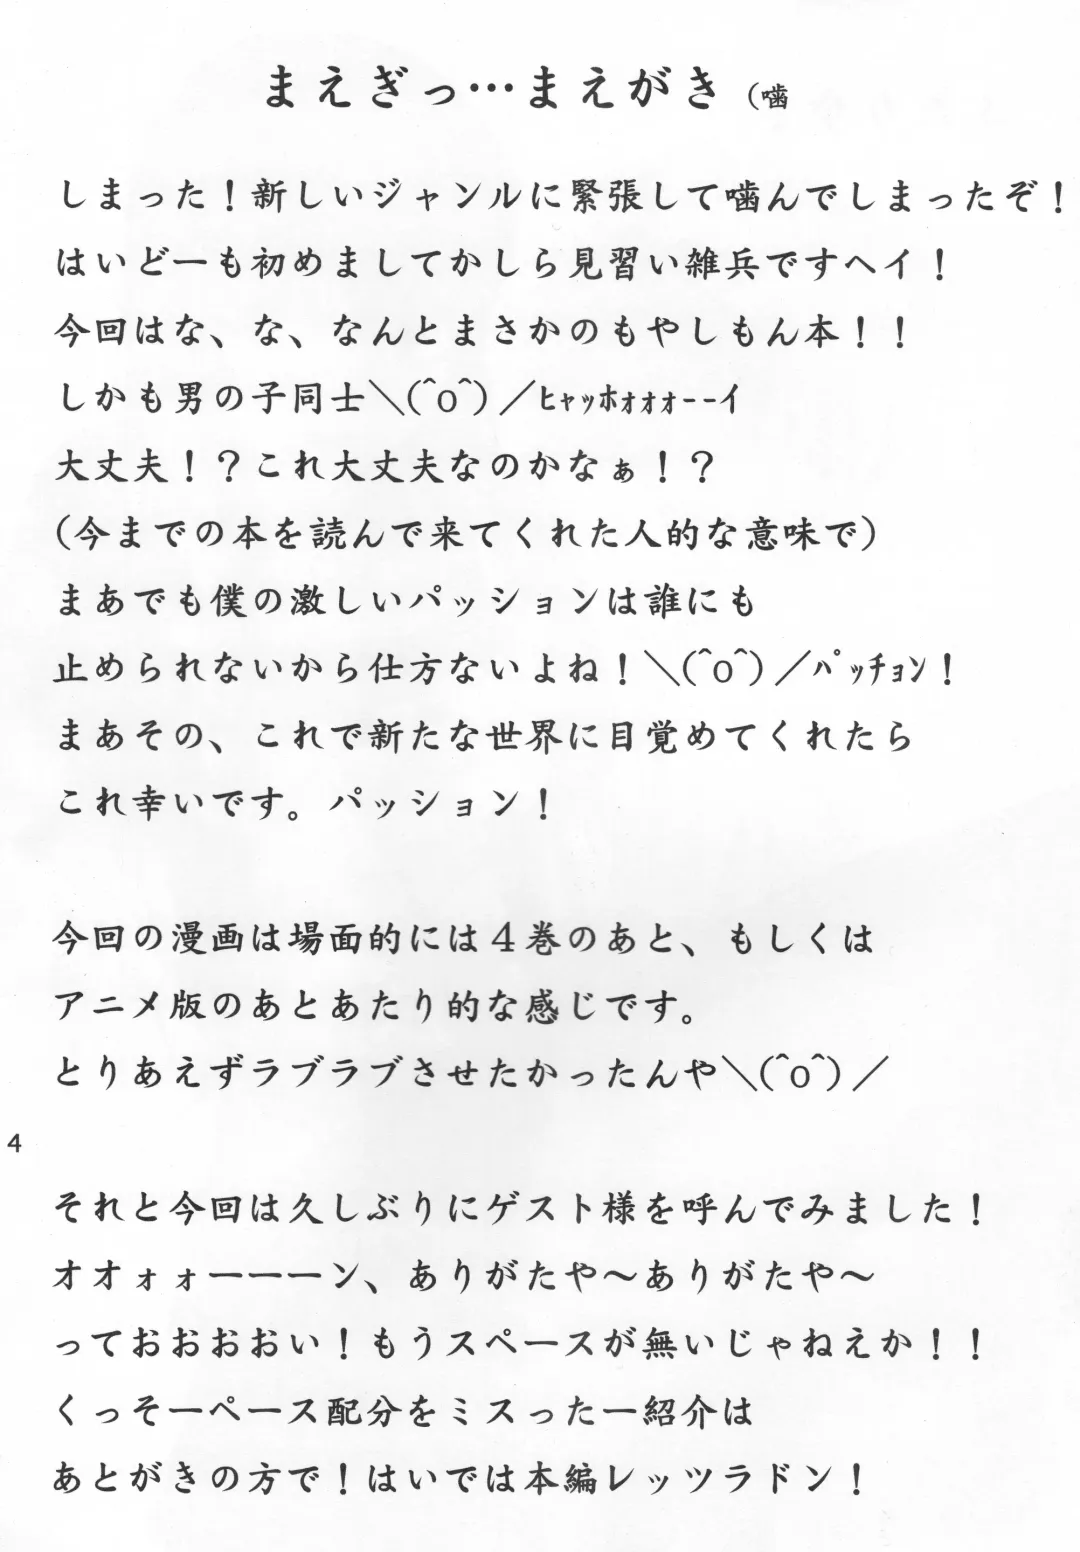 まえぎっ…まえがき（噛
しまった！新しいジャンルに緊張して噛んでしまったぞ！
はいどーも初めましてかしら見習い雑兵ですヘイ！
今回はな、な、なんとまさかのもやしもん本！！
しかも男の子同士＼(^o^)／ﾋｬｯﾎｫｫｫｰｰイ
大丈夫！？これ大丈夫なのかなぁ！？
（今までの本を読んで来てくれた人的な意味で）
まあでも僕の激しいパッションは誰にも
止められないから仕方ないよね！＼(^o^)／ﾊﾟｯﾁｮﾝ！
まあその、これで新たな世界に目覚めてくれたら
これ幸いです。パッション！
今回の漫画は場面的には４巻のあと、もしくは
アニメ版のあとあたり的な感じです。
とりあえずラブラブさせたかったんや＼(^o^)／
4
それと今回は久しぶりにゲスト様を呼んでみました！
オオォォーーーン、ありがたや～ありがたや～
っておおおおい！もうスペースが無いじゃねえか！！
くっそーペース配分をミスったー紹介は
あとがきの方で！はいでは本編レッツラドン！